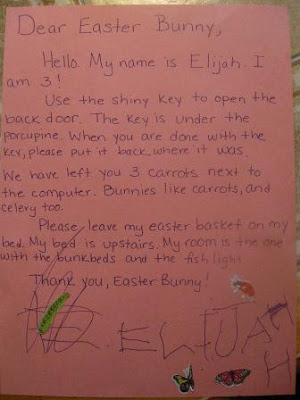 Dear Easter Bunny,
Hello. My name is Elijah. I
am 3!
Use the shiny key to open the
back door. The key is under the
porcupine. When you are done with the
key, please put it back where it was.
We have left you 3 carrots next to
the computer. Bunnies like carrots, and
celery too.
Please leave my easter basket on my
bed. My bed is upstairs. My room is the one
with the bunkbeds and the fish light
Thank you, Easter Bunny!
ELIJAH